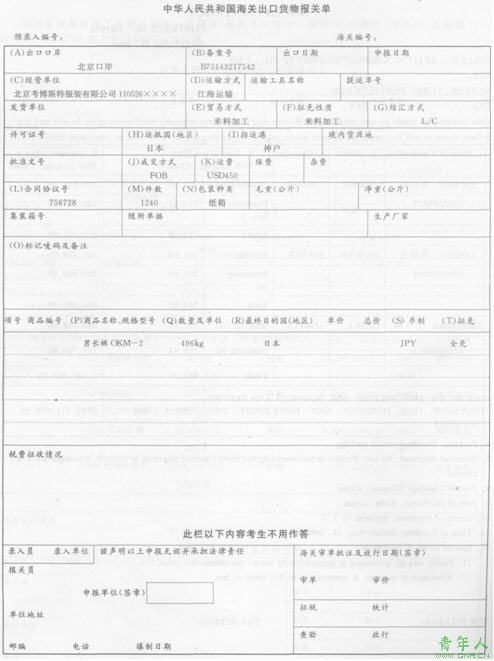 中华人民共和国海关出口货物报关单
预录入编号: 海关编号:
(A)出口口岸 (B)备案号 出口日期 申报日期
北京口岸 B75143217542
(C)经营单位 (D)运输方式 运输工具名称 提运单号
北京考博斯特服装有限公司110526×××× 江海运输
发货单位 (E)贸易方式 (F)征免性质 (G)结汇方式
来料加工 来料加工 L/C
许可证号 (H)运抵国(地区) (I)指运港 境内货源地
日本 神户
批准文号 (J)成交方式 (K)运费 保费 杂费
FOB USD450
(L)合同协议号 (M)件数 (N)包装种类 毛重(公斤) 净重(公斤)
756728 1240 纸箱
集装箱号 随附单据 生产厂家
(O)标记唛码及备注
项号 商品编号 (P)商品名称、规格型号 (Q)数量及单位 (R)最终目的国(地区) 单价 总价 (S)币制 (T)征免
男长裤OKM-2 496kg 日本 JPY 全免
税费征收情况
此栏以下内容考生不用作答
录入员 录入单位 兹声明以上申报无讹并承担法律责任 海关审单批注及放行日期(签章)
报关员
申报单位(签章) 审单 审价
征税 统计
单位地址
查验 放行
邮编 电话 填制日期
青年人
www.QNR.CN